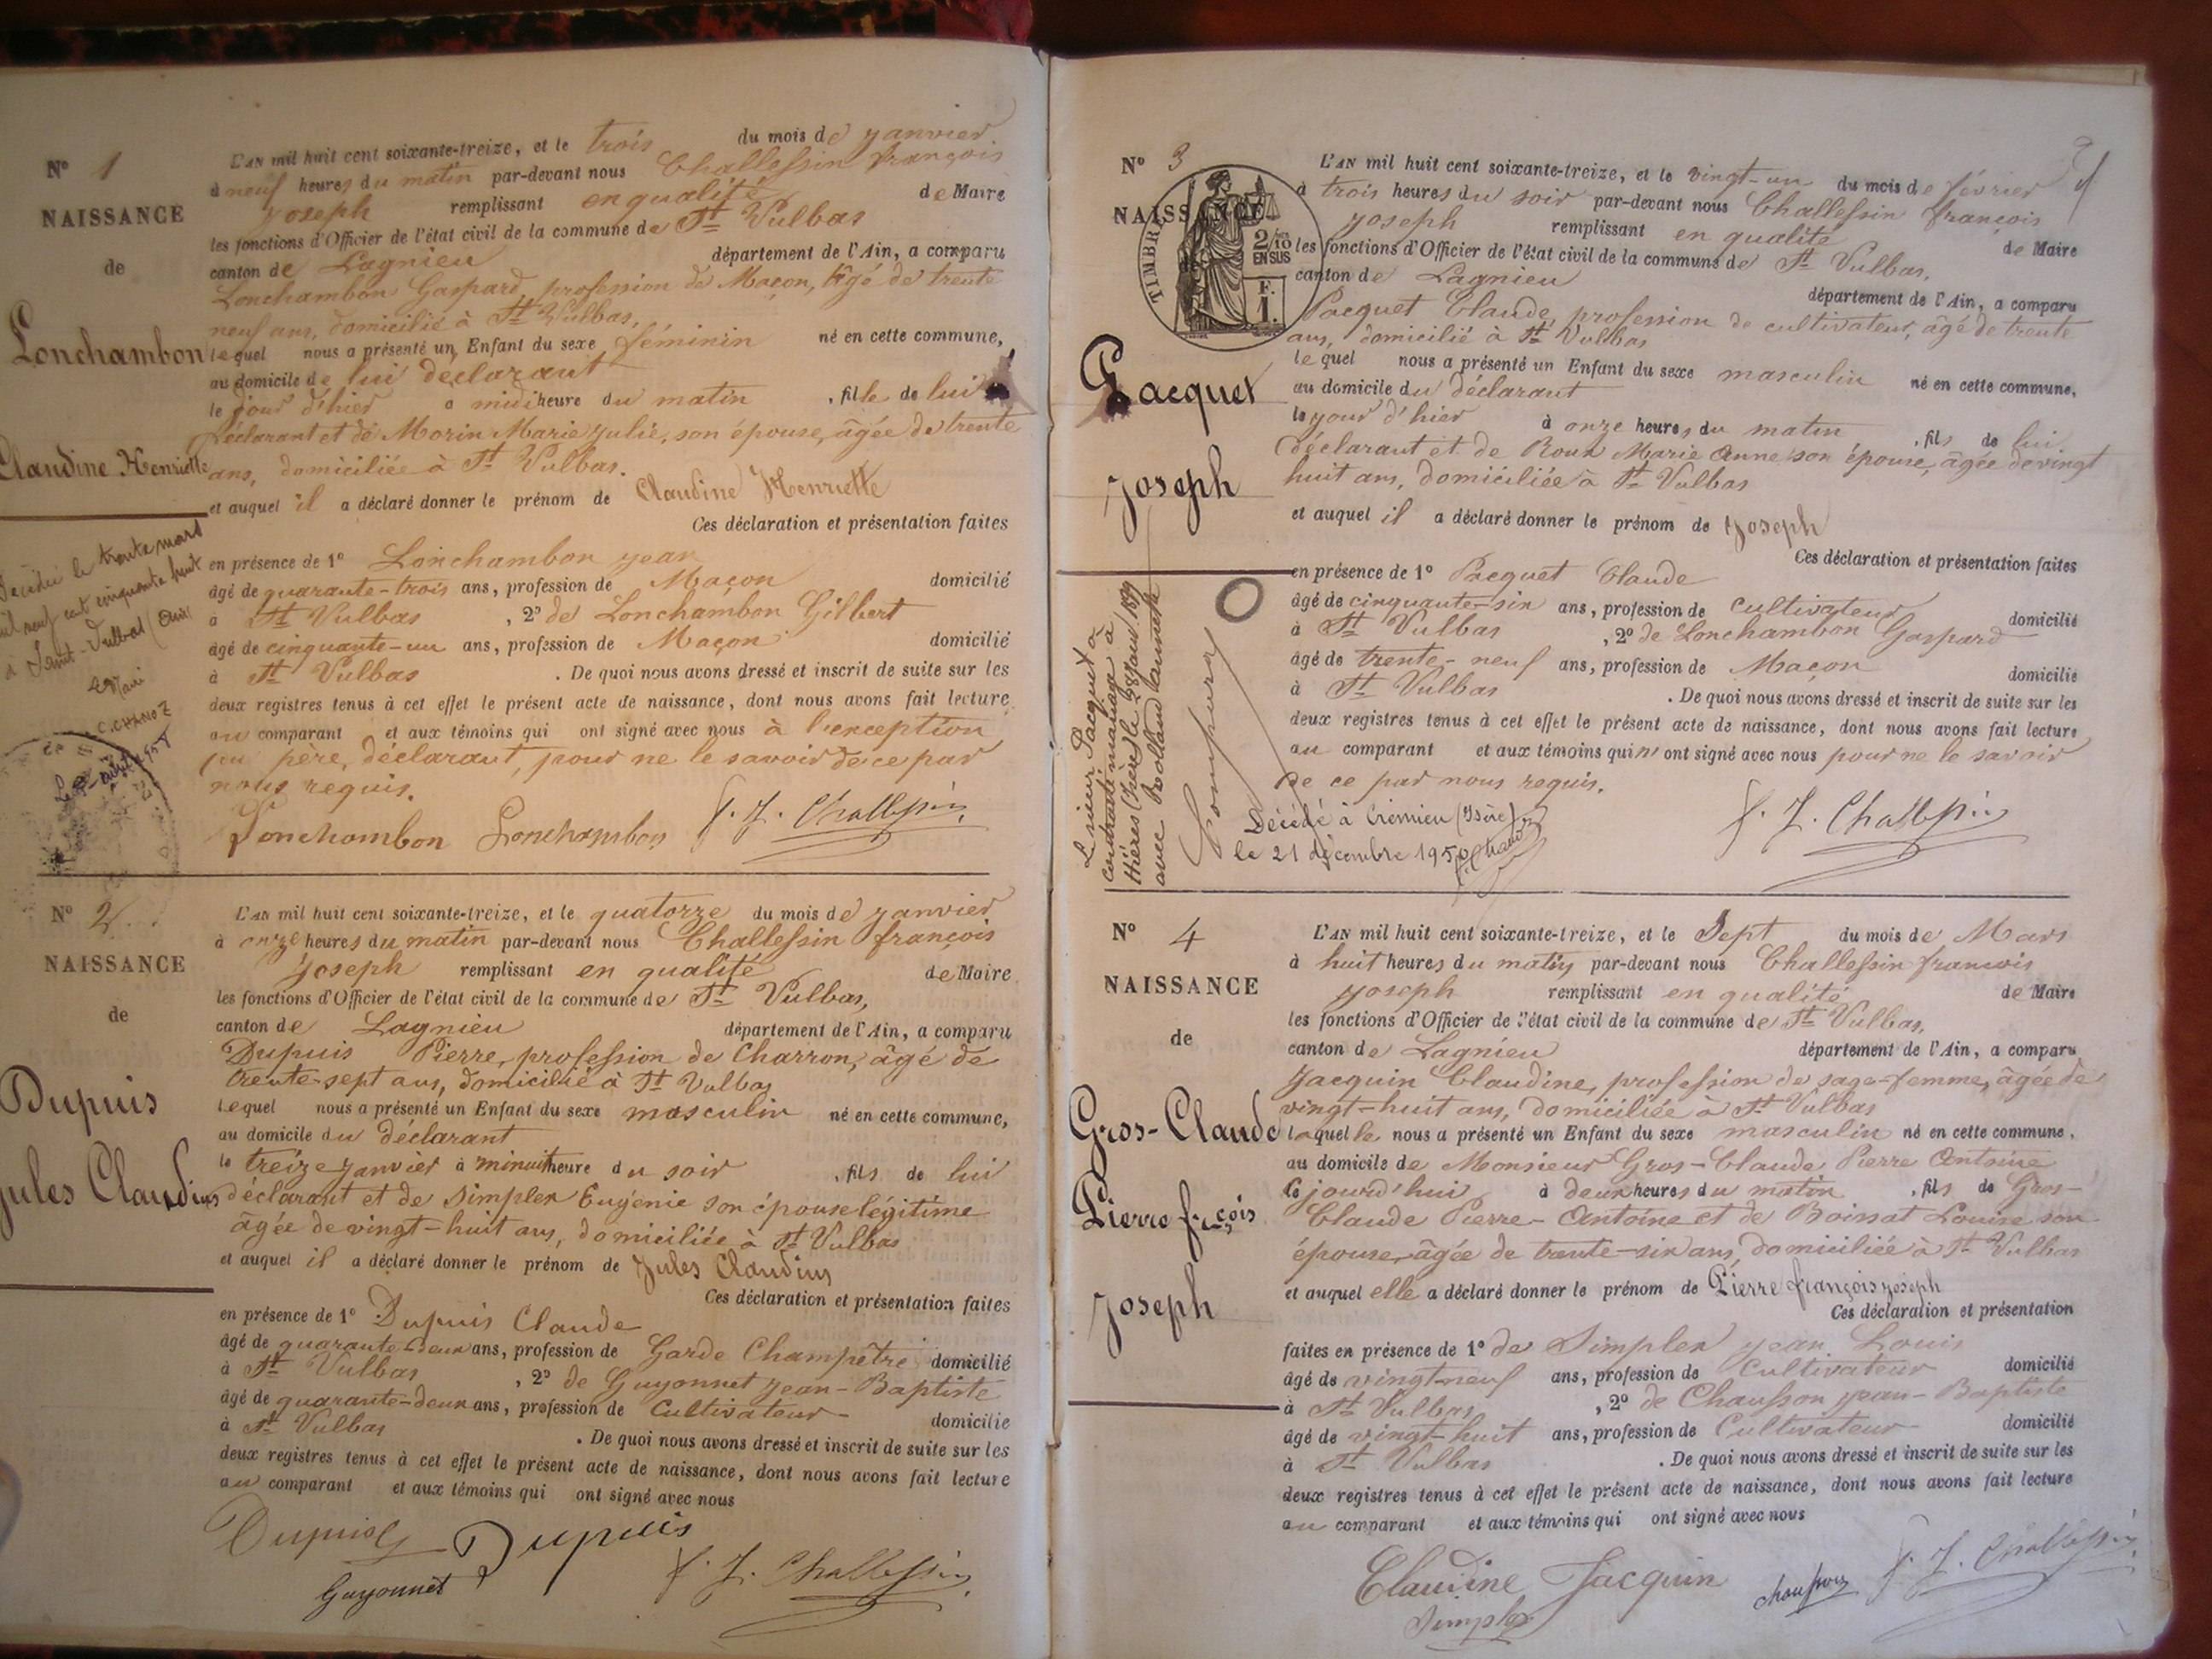 N° 1
NAISSANCE
de
Lonchambon
Claudine Henriette
Décédée le trente mars
mil neuf cent cinquante huit
à Saint-Vulbas (Ain)
Le Maire
C. CHANOZ
L'AN mil huit cent soixante-treize, et le trois du mois de janvier
à neuf heures du matin par-devant nous Challessin françois
Joseph remplissant en qualité de Maire
les fonctions d'Officier de l'état civil de la commune de St Vulbas
canton de Lagnieu département de l'Ain, a comparu
Lonchambon Gaspard, profession de Maçon, âgé de trente
neuf ans, domicilié à St Vulbas,
lequel nous a présenté un Enfant du sexe féminin né en cette commune,
au domicile de lui declarant
le jour d'hier a midi heure du matin , fille de lui
déclarant et de Morin Marie Julie, son épouse, âgée de trente
ans, domiciliée à St Vulbas.
et auquel il a déclaré donner le prénom de Claudine Henriette
Ces déclaration et présentation faites
en présence de 1° Lonchambon jean
âgé de quarante-trois ans, profession de Maçon domicilié
à St Vulbas , 2° de Lonchambon Gilbert
âgé de cinquante-un ans, profession de Maçon domicilié
à St Vulbas . De quoi nous avons dressé et inscrit de suite sur les
deux registres tenus à cet effet le présent acte de naissance, dont nous avons fait lecture
au comparant et aux témoins qui ont signé avec nous à l'exception
du père, déclarant, pour ne le savoir de ce par
nous requis.
Lonchambon Lonchambon f. J. Challessin
N° 2
NAISSANCE
de
Dupuis
Jules Claudius
L'AN mil huit cent soixante-treize, et le quatorze du mois de janvier
à onze heures du matin par-devant nous Challessin françois
Joseph remplissant en qualité de Maire
les fonctions d'Officier de l'état civil de la commune de St Vulbas,
canton de Lagnieu département de l'Ain, a comparu
Dupuis Pierre, profession de Charron, âgé de
trente-sept ans, domicilié à St Vulbas
lequel nous a présenté un Enfant du sexe masculin né en cette commune,
au domicile du déclarant
le treize janvier à minuit heure du soir , fils de lui
déclarant et de Simplex Eugénie son épouse légitime
âgée de vingt-huit ans, domiciliée à St Vulbas
et auquel il a déclaré donner le prénom de Jules Claudius
Ces déclaration et présentation faites
en présence de 1° Dupuis Claude
âgé de quarante deux ans, profession de Garde Champêtre domicilié
à St Vulbas , 2° de Guyonnet jean-Baptiste
âgé de quarante-deux ans, profession de Cultivateur domicilié
à St Vulbas . De quoi nous avons dressé et inscrit de suite sur les
deux registres tenus à cet effet le présent acte de naissance, dont nous avons fait lecture
au comparant et aux témoins qui ont signé avec nous
Dupuis Dupuis
Guyonnet f. J. Challessin
N° 3
NAISSANCE
de
TIMBRE
2/10 EN SUS
F. 1.
Pacquet
Joseph
Le sieur Pacquet a
contracté mariage à
Hières (Isère) le 28 Janv 1899
avec Rolland Jeannette
L'AN mil huit cent soixante-treize, et le vingt-un du mois de février
à trois heures du soir par-devant nous Challessin françois
Joseph remplissant en qualité de Maire
les fonctions d'Officier de l'état civil de la commune de St Vulbas,
canton de Lagnieu département de l'Ain, a comparu
Pacquet Claude, profession de cultivateur, âgé de trente
ans, domicilié à St Vulbas
lequel nous a présenté un Enfant du sexe masculin né en cette commune,
au domicile du déclarant
le jour d'hier à onze heures du matin , fils de lui
déclarant et de Roux Marie Anne son épouse, âgée de vingt
huit ans, domiciliée à St Vulbas
et auquel il a déclaré donner le prénom de Joseph
Ces déclaration et présentation faites
en présence de 1° Pacquet Claude
âgé de cinquante-six ans, profession de Cultivateur domicilié
à St Vulbas , 2° de Lonchambon Gaspard
âgé de trente-neuf ans, profession de Maçon domicilié
à St Vulbas . De quoi nous avons dressé et inscrit de suite sur les
deux registres tenus à cet effet le présent acte de naissance, dont nous avons fait lecture
au comparant et aux témoins qui n'ont signé avec nous pour ne le savoir
de ce par nous requis.
Décédé à Crémieu (Isère)
le 21 décembre 1950
f. J. Challessin
N° 4
NAISSANCE
de
Gros-Claude
Pierre frçois
Joseph
L'AN mil huit cent soixante-treize, et le Sept du mois de Mars
à huit heures du matin par-devant nous Challessin francois
Joseph remplissant en qualité de Maire
les fonctions d'Officier de l'état civil de la commune de St Vulbas,
canton de Lagnieu département de l'Ain, a comparu
Jacquin Claudine, profession de sage-femme, âgée de
vingt-huit ans, domiciliée à St Vulbas
laquelle nous a présenté un Enfant du sexe masculin né en cette commune,
au domicile de Monsieur Gros-Claude Pierre Antoine
ce jourd'hui à deux heures du matin , fils de Gros-
Claude Pierre-Antoine et de Boissat Louise son
épouse, âgée de trente-six ans, domiciliée à St Vulbas
et auquel elle a déclaré donner le prénom de Pierre françois Joseph
Ces déclaration et présentation
faites en présence de 1° de Simplex jean Louis
âgé de vingt-neuf ans, profession de Cultivateur domicilié
à St Vulbas , 2° de Chausson jean-Baptiste
âgé de vingt-huit ans, profession de Cultivateur domicilié
à St Vulbas . De quoi nous avons dressé et inscrit de suite sur les
deux registres tenus à cet effet le présent acte de naissance, dont nous avons fait lecture
au comparant et aux témoins qui ont signé avec nous
Claudine Jacquin chausson f. J. Challessin
Simplex